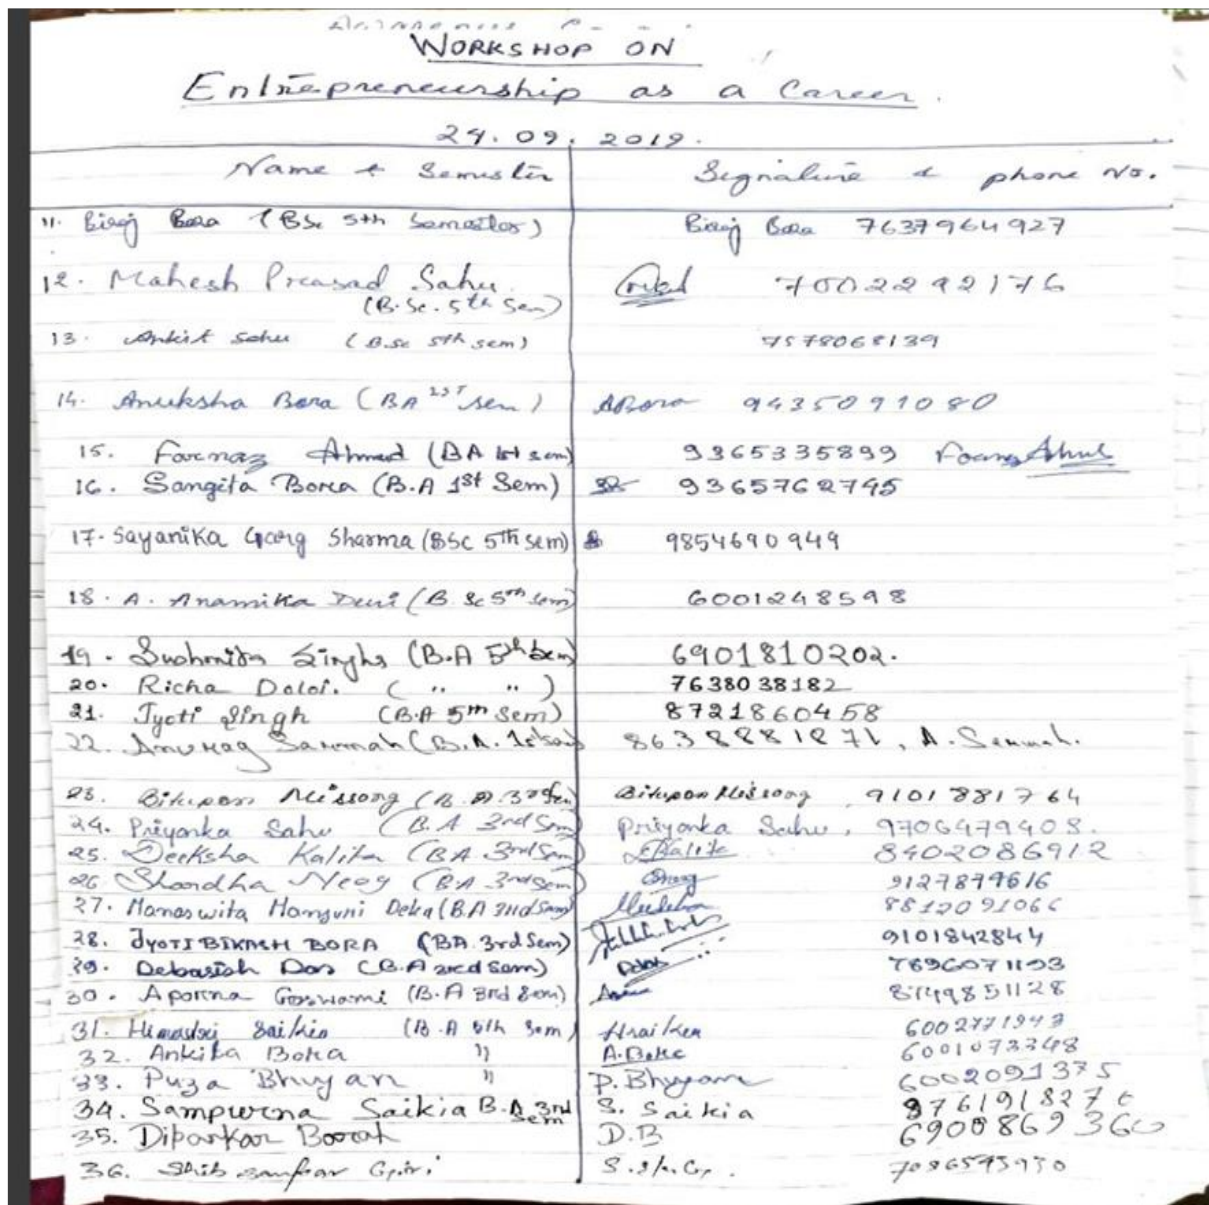 WORKSHOP ON
Entrepreneurship as a Career.
24.09.2019.
Name & Semester Signature & phone No.
11. Biraj Bora (BSc 5th Semester) Biraj Bora 7637964927
12. Mahesh Prasad Sahu 7002292176
(B.Sc. 5th Sem)
13. Ankit Sahu (B.Sc 5th sem) 7578068139
14. Anuksha Bora (BA 1ST sem) ABora 9435091080
15. Farnaz Ahmed (BA 1st sem) 9365335899
16. Sangita Bora (B.A 1st Sem) 9365762745
17. Sayanika Garg Sharma (BSc 5th sem) 9854690949
18. A. Anamika Devi (B.Sc 5th sem) 6001248598
19. Sushmita Singha (B.A 5th Sem) 6901810202.
20. Richa Doloi. ( " " ) 7638038182
21. Jyoti Singh (B.A 5th Sem) 8721860458
22. Anurag Sarmah (B.A. 1st Sem) A. Sarmah.
23. Bitupon Missong (B.A. 3rd Sem) Bitupon Missong 9101881764
24. Priyanka Sahu (B.A 3rd Sem) Priyanka Sahu, 9706479408.
25. Deeksha Kalita (BA 3rd Sem) 8402086912
26. Shardha Neog (BA 3rd Sem)
27. Manaswita Hanguni Deka (B.A 3rd Sem)
28. JYOTI BIKASH BORA (BA. 3rd Sem) 9101842844
29. Debasish Das (B.A 3rd Sem)
30. Aporna Goswami (B.A 3rd Sem)
31. Himashri Saikia (B.A 5th Sem) HSaikia 6002771943
32. Ankita Bora " A.Bora 6001073348
33. Puja Bhuyan " P. Bhuyan 6002091375
34. Sampurna Saikia B.A 3rd Sem S. Saikia
35. Dipankar Borah D.B 6900869360
36. Shib sankar Giri.